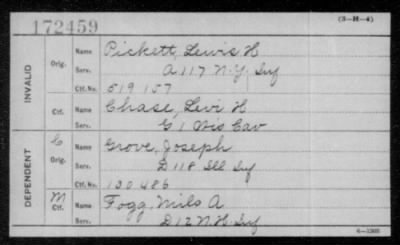 172459
(3-H-4)
INVALID
Orig. Name Pickett, Lewis H
Serv. A 117 N.Y. Inf
Ctf. No. 519157
Ctf. Name Chase, Levi H
Serv. G 1 Wis Cav
DEPENDENT
C Orig. Name Grove, Joseph
Serv. D 118 Ill Inf
Ctf. No. 130486
M Ctf. Name Fogg, Milo A
Serv. D 12 N.H. Inf
6-1305